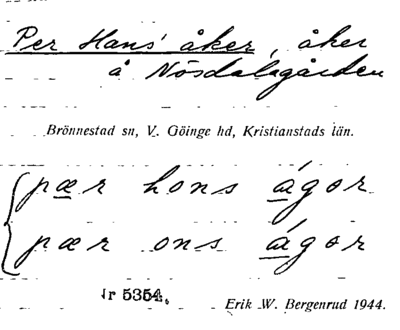 Per Hans' åker, åker
å Nösdalagården
Brönnestad sn, V. Göinge hd, Kristianstads län.
pær hons ágər
pær ons ágər
Nr 5354.
Erik W. Bergenrud 1944.